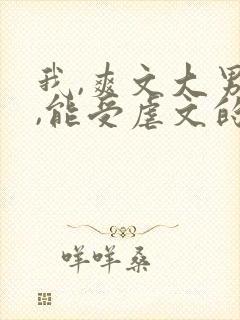 我,爽文大男
,能受虐文的
咩咩桑